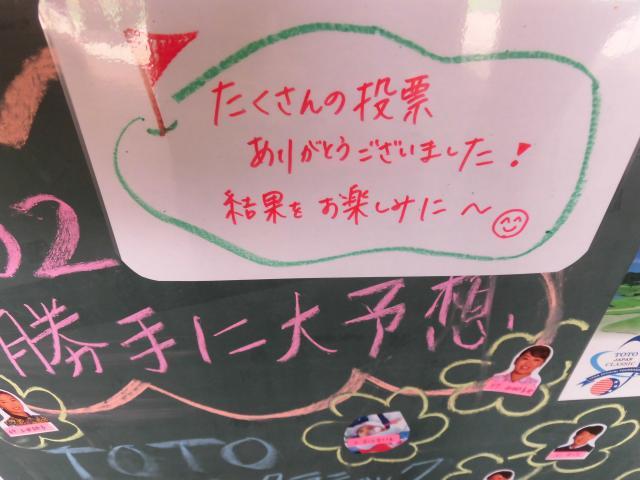 たくさんの投票
ありがとうございました!
結果を お楽しみに~
02
勝手に大予想
TOTO
JAPAN
CLASSIC
TOTO
クラシック